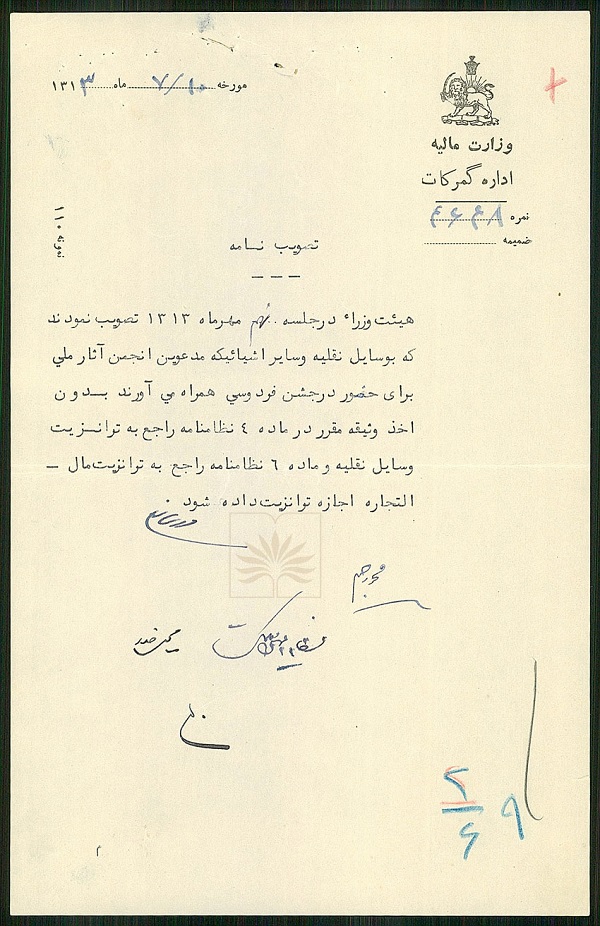 مورخه ۷/۱۰ ماه ۱۳۱۳
وزارت مالیه
اداره گمرکات
نمره
ضمیمه
نمونه ۱۱۰
تصویب نامه
هیئت وزراء درجلسه نهم مهرماه ۱۳۱۳ تصویب نمودند
که بوسایل نقلیه وسایر اشیائیکه مدعوین انجمن آثار ملي
برای حضور درجشن فردوسي همراه مي آورند بدون
اخذ وثیقه مقرر در ماده ٤ نظامنامه راجع به ترانزیت
وسایل نقلیه و ماده ٦ نظامنامه راجع به ترانزیت مال ــ
التجاره اجازه ترانزیت داده شود .